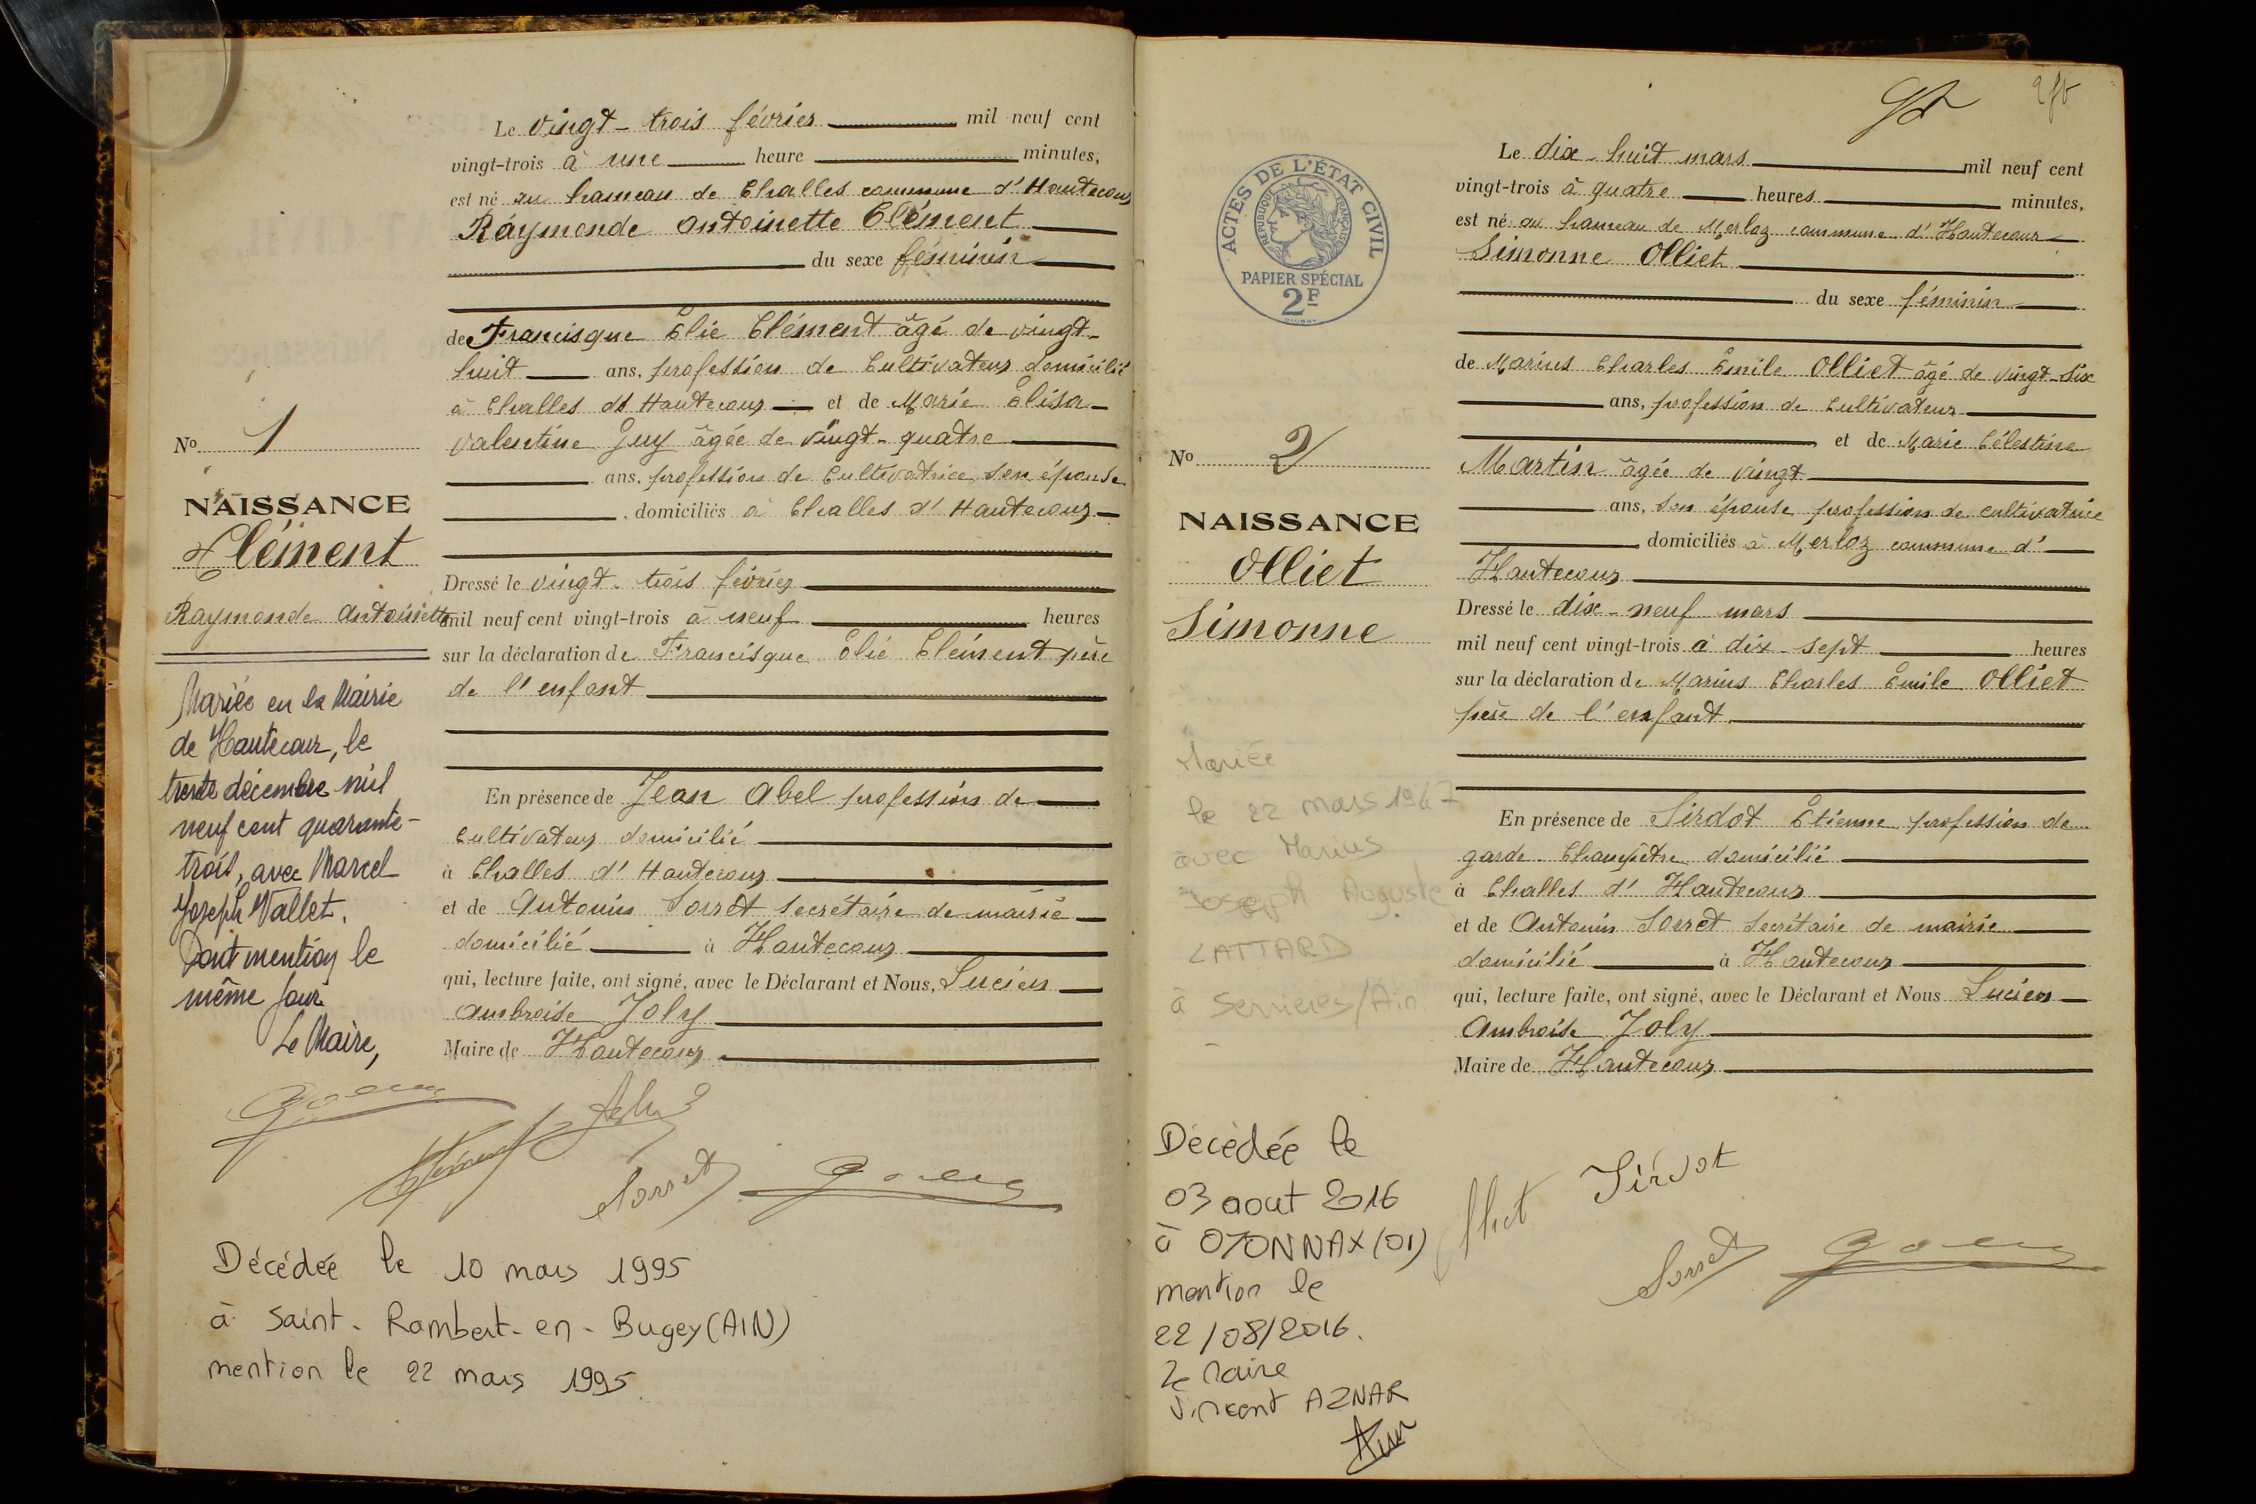 Le vingt-trois février mil neuf cent
vingt-trois à une heure minutes,
est né au hameau de Challes commune d'Hautecour
Raymonde Antoinette Clément
du sexe féminin
de Francisque Élie Clément âgé de vingt-
huit ans, profession de Cultivateur domicilié
à Challes d'Hautecour et de Marie Élisa
Valentine Guy âgée de vingt-quatre
ans, profession de Cultivatrice, son épouse
domiciliés à Challes d'Hautecour
Dressé le vingt-trois février
mil neuf cent vingt-trois à neuf heures
sur la déclaration de Francisque Élie Clément père
de l'enfant
En présence de Jean Abel profession de
Cultivateur domicilié
à Challes d'Hautecour
et de Antonin Sorret secrétaire de mairie
domicilié à Hautecour
qui, lecture faite, ont signé, avec le Déclarant et Nous, Lucien
Ambroise Joly
Maire de Hautecour
No 1
NAISSANCE
Clément
Raymonde Antoinette
Mariée en la Mairie
de Hautecour, le
trente décembre mil
neuf cent quarante-
trois, avec Marcel
Joseph Vallet.
Dont mention le
même jour.
Le Maire,
Clément
Sorret
Décédée le 10 mars 1995
à Saint-Rambert-en-Bugey (AIN)
mention le 22 mars 1995.
ACTES DE L'ÉTAT CIVIL
RÉPUBLIQUE FRANÇAISE
PAPIER SPÉCIAL
2F
No 2
NAISSANCE
Olliet
Simonne
Mariée
le 22 mars 1947
avec Marius
Joseph Auguste
LATTARD
à Serrières/Ain
Décédée le
03 aout 2016
à OYONNAX (01)
mention le
22/08/2016.
Le Maire
Vincent AZNAR
Le dix-huit mars mil neuf cent
vingt-trois à quatre heures minutes,
est né au hameau de Merloz commune d'Hautecour
Simonne Olliet
du sexe féminin
de Marius Charles Émile Olliet âgé de vingt-six
ans, profession de Cultivateur
et de Marie Célestine
Martin âgée de vingt
ans, son épouse profession de cultivatrice
domiciliés à Merloz commune d'
Hautecour
Dressé le dix-neuf mars
mil neuf cent vingt-trois à dix-sept heures
sur la déclaration de Marius Charles Émile Olliet
père de l'enfant
En présence de Sirdot Étienne profession de
garde-Champêtre domicilié
à Challes d'Hautecour
et de Antonin Sorret secrétaire de mairie
domicilié à Hautecour
qui, lecture faite, ont signé, avec le Déclarant et Nous Lucien
Ambroise Joly
Maire de Hautecour
Olliet Sirdot
Sorret